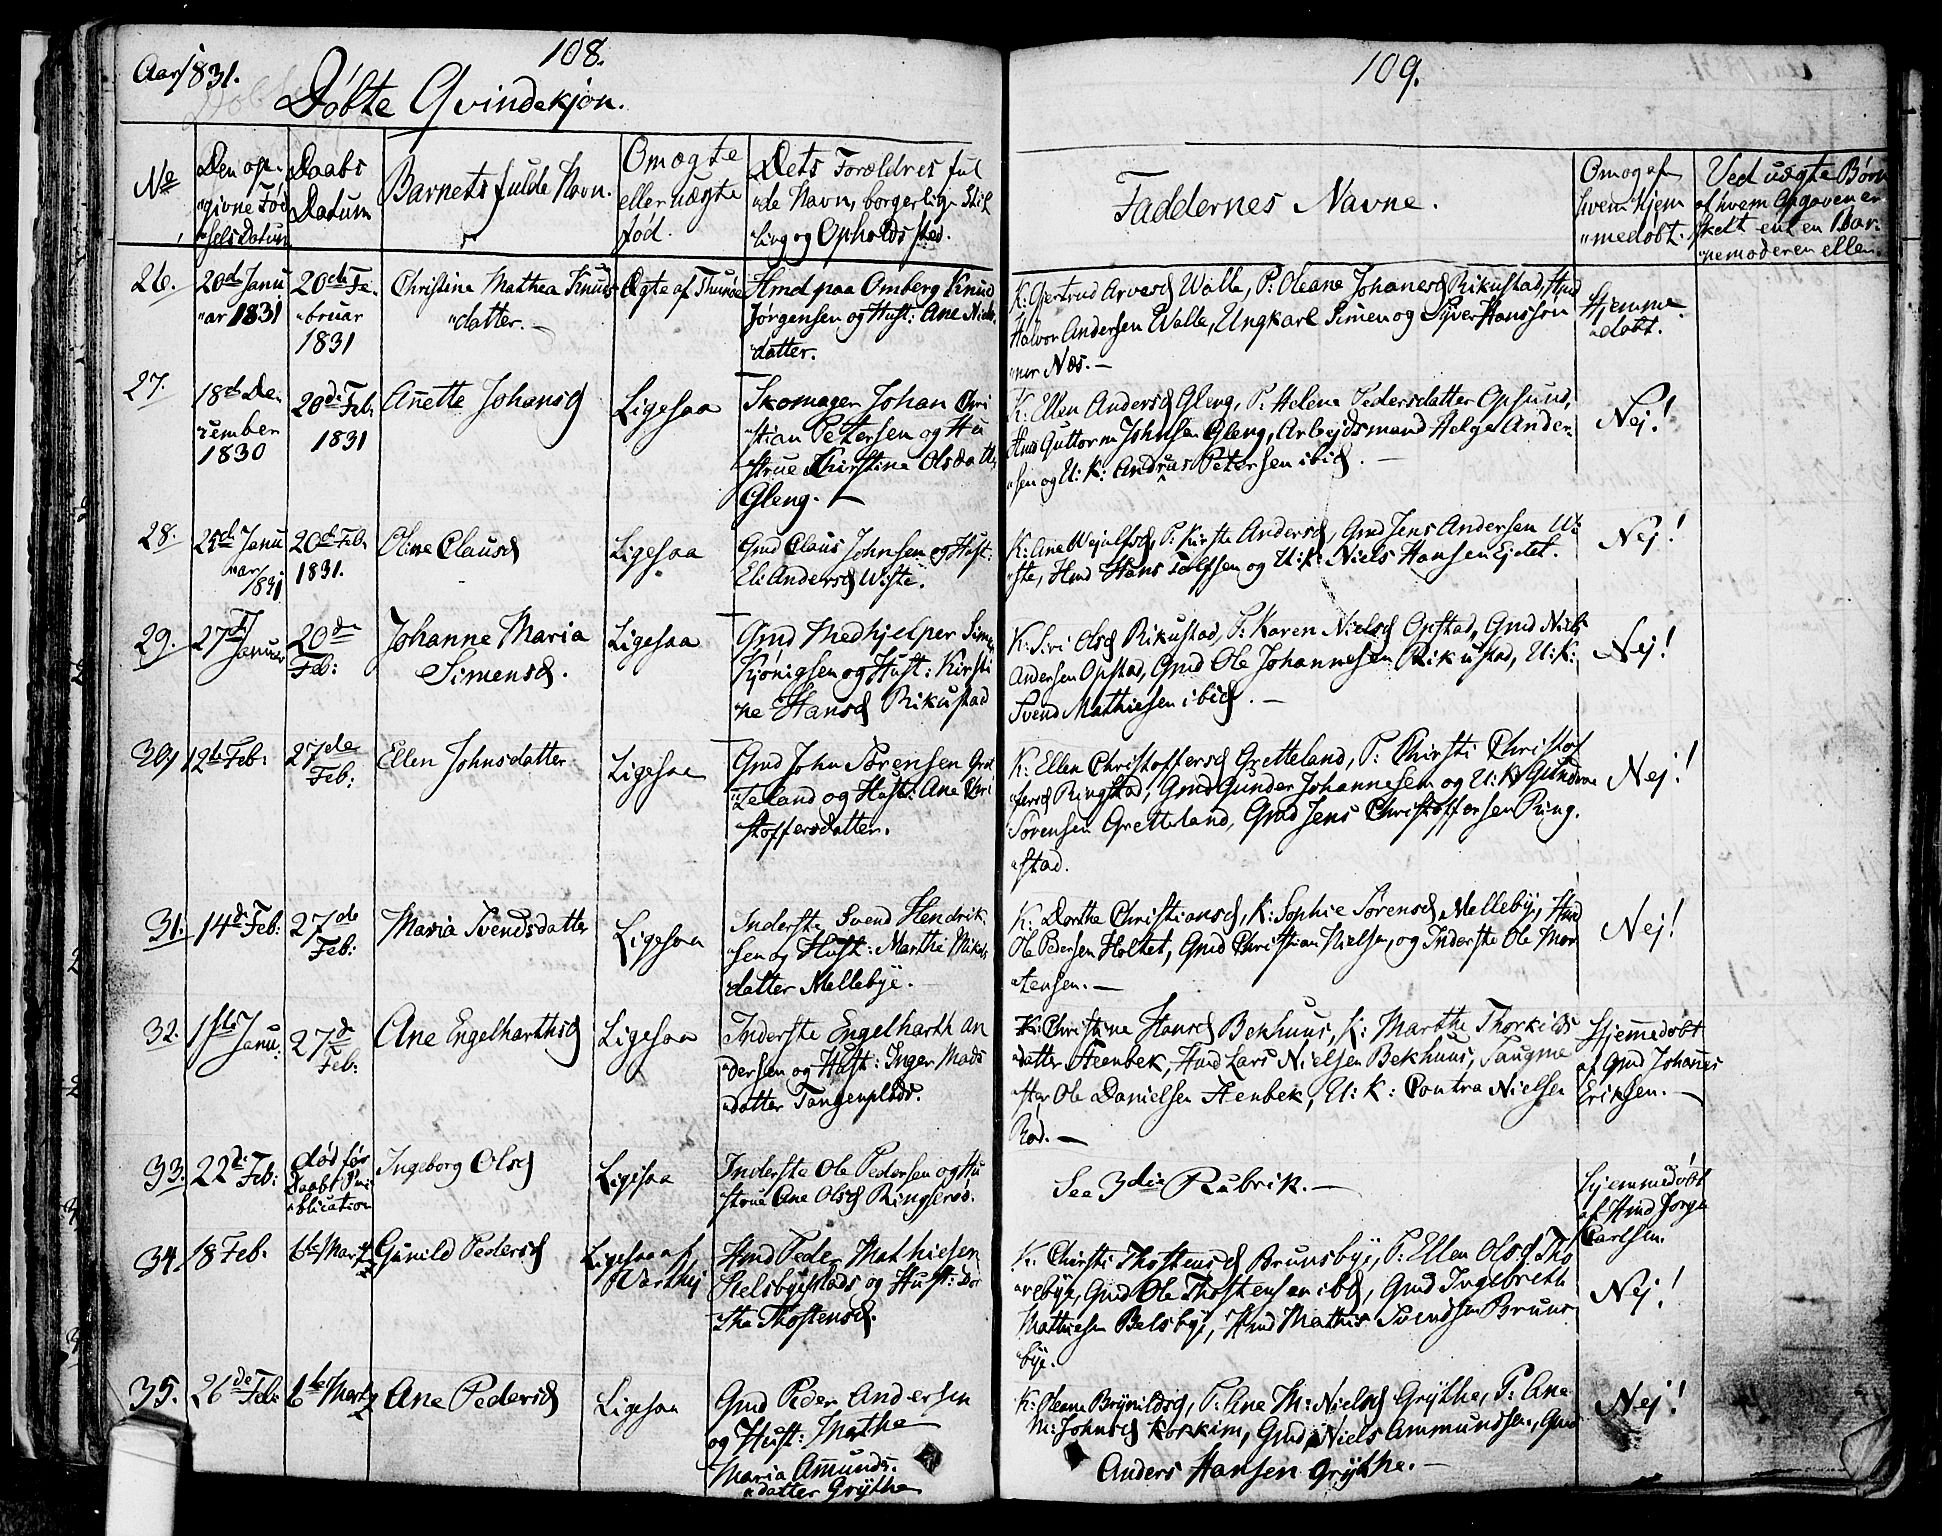 Aar 1831.
108.
Døbte Qvindekjøn.
No
Den op-
givne Fød
selsDatum
Daabs
Datum
Barnets fulde Navn.
Om ægte
eller uægte
fød.
Dets Forældres ful
de Navn, borgerlige Stil
ling og Opholdssted.
26.
20de Janu
ar 1831
20de Fe-
bruar
1831
Christine Mathea Knuds
datter.
Ægte af Thunøe
Hmd paa Omberg Knud
Jørgensen og Hust: Ane Niels-
datter.
27.
18de De
cember
1830
20de Feb.
1831
Anette Johansd
Ligesaa
Skomager Johan Chri
stian Petersen og Hu
strue Chirstine Olsdatt.
Gleng. —
28.
25de Janu
ar 1831
20de Feb.
1831.
Oline Clausd
Ligesaa
Gmd Claus Johnsen og Hust:
Eli Andersd Wiste.
29.
27de
Januar
20de
Feb:
Johanne Maria
Simensd.
Ligesaa
Gmd Medhjelper Simen
Kjønigsen og Hust: Kirsti
ne Hansd Rikustad
30
12te Feb:
27de
Feb:
Ellen Johnsdatter
Ligesaa
Gmd John Sørensen Gret
teland og Hust: Ane Chri
stoffersdatter.
31.
14de Feb:
27de
Feb:
Maria Svendsdatter
Ligesaa
Inderste Svend Hendrik
sen og Hust: Marthe Nikols
datter Mellebye.
32.
1ste
Janu:
27de
Feb:
Ane Engelharthsd
Ligesaa
Inderste Engelharth An
dersen og Hust: Inger Mads
datter Tangenplads.
33.
22de
Feb:
død før
Daabs Pu
blication
Ingeborg Olsd
Ligesaa
Inderste Ole Pedersen og Hu
strue Ane Olsd Ringsrød.
34
18 Feb.
6te Martz
Gunild Pedersd
Ligesaa af
Warthej
Hmd Peder Mathiesen
Helsbyeplads og Hust: Dor
the Thostensd.
35.
26de Feb:
6te Martz
Ane Pedersd
Ligesaa
Gmd Peder Andersen
og Hust: Mathe
Maria Amunds-
datter Grythe
109.
Faddernes Navne.
Om og af
hvem hjem
medøbt.
Ved uægte Børn
af hvem Opgaven er
skeet enten Bar-
nemoderen eller
K: Gjertrud Arvesd Walle, P: Oleane Johanesd Rikustad, Hmd
Halvor Andersen Walle, Ungkarl Simen og Syver Hanssøn
ner Næs. —
Hjemme-
døbt.
K: Ellen Andersd Gleng, P: Helene Pedersdatter Opsund,
Hmd Guttorm Johnsen Gleng, Arbejdsmand Helge Ander-
sen og U: K: Andreas Petersen ibid. —
Nej!
K: Ane Wejulfsd, P: Kirste Andersd, Gmd Jens Andersen Wi
ste, Hmd Hans Tolfsen og U: K: Niels Hansen Ejdet.
Nej!
K: Siri Olsd Rikustad, P: Karen Nielsd Opstad, Gmd Niels
Andersen Opstad, Gmd Ole Johannesen Rikustad, U: K:
Svend Mathiesen ibid. —
Nej!
K: Ellen Christoffersd Gretteland, P: Chirsti Christof
fersd Ringstad, Gmd Gunder Johannesen og U: K Gunder
Sørensen Gretteland, Gmd Jens Christoffersen Ring-
stad.
Nej!
K: Dorthe Christiansd, K: Sophie Sørensd Mellebye, Hmd
Ole Pedersen Holtet, Gmd Christian Nielsen, og Inderste Ole Mor
tensen. —
Nej!
K: Christine Hansd Bekhuus, K: Marthe Thorkilds
datter Steenbek, Hmd Lars Nielsen Bekhuus, Saugme
ster Ole Danielsen Stenbek, U: K: Contra Nielsen
Rød. —
Hjemedøbt
af Gmd Johanes
Eriksen. —
See 3die Rubrik. —
Hjemmedøbt
af Hmd Jørge
Carlsen.
K: Chirsti Thostensd Brunsbye, P: Ellen Olsd Tho
rebye, Gmd Ole Thostensen ibd, Gmd Ingebreth
Mathiesen Belsbye, Hmd Mathis Svendsen Bruns
bye.
Nej!
K: Oleana Brynildsd, P: Ane M: Nielsd Grythe, P: Ane
M: Johnsd Korkim, Gmd Niels Ammundsen, Gmd
Anders Hansen Grythe. —
Nej!